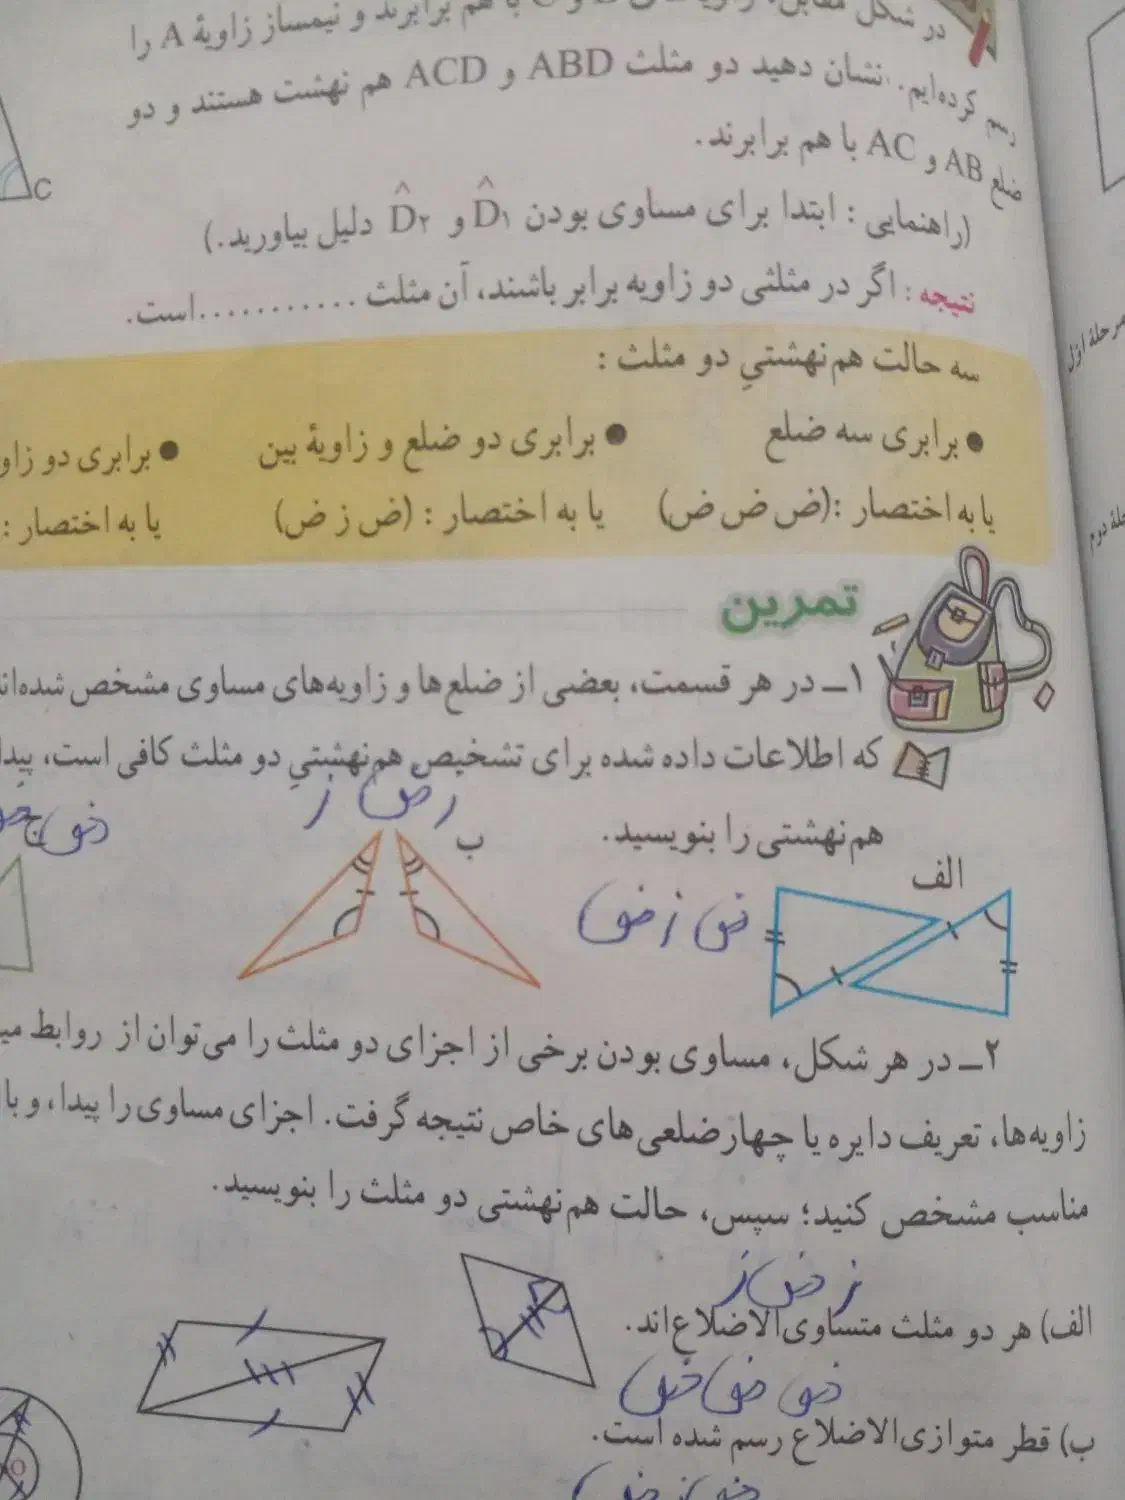 در شکل مقابل، با هم برابرند و نیمساز زاویهٔ A را
رسم کرده‌ایم. نشان دهید دو مثلث ABD و ACD هم نهشت هستند و دو
ضلع AB و AC با هم برابرند.
C
(راهنمایی : ابتدا برای مساوی بودن D̂۱ و D̂۲ دلیل بیاورید.)
نتیجه : اگر در مثلثی دو زاویه برابر باشند، آن مثلث ...........است.
مرحلهٔ اوّل
سه حالت هم‌نهشتیِ دو مثلث :
● برابری سه ضلع ● برابری دو ضلع و زاویهٔ بین ● برابری دو
یا به اختصار :(ض ض ض) یا به اختصار : (ض ز ض) یا به اختصار :
دوم
تمرین
۱ــ در هر قسمت، بعضی از ضلع‌ها و زاویه‌های مساوی مشخص شده‌اند
که اطلاعات داده شده برای تشخیص هم‌نهشتیِ دو مثلث کافی است، پیدا
هم‌نهشتی را بنویسید.
ز ض ز
الف
ب
ج
ض ز ض
۲ــ در هر شکل، مساوی بودن برخی از اجزای دو مثلث را می‌توان از روابط
زاویه‌ها، تعریف دایره یا چهارضلعی‌های خاص نتیجه گرفت. اجزای مساوی را پیدا، و با
مناسب مشخص کنید؛ سپس، حالت هم‌نهشتی دو مثلث را بنویسید.
ز ض ز
الف) هر دو مثلث متساوی‌الاضلاع‌اند.
ض ض ض
ب) قطر متوازی‌الاضلاع رسم شده است.
ض ز ض
O